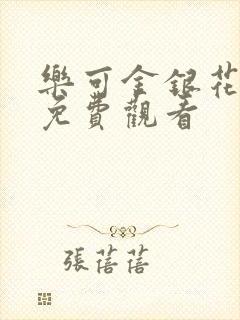 樂可金銀花
免費觀看
張蓓蓓